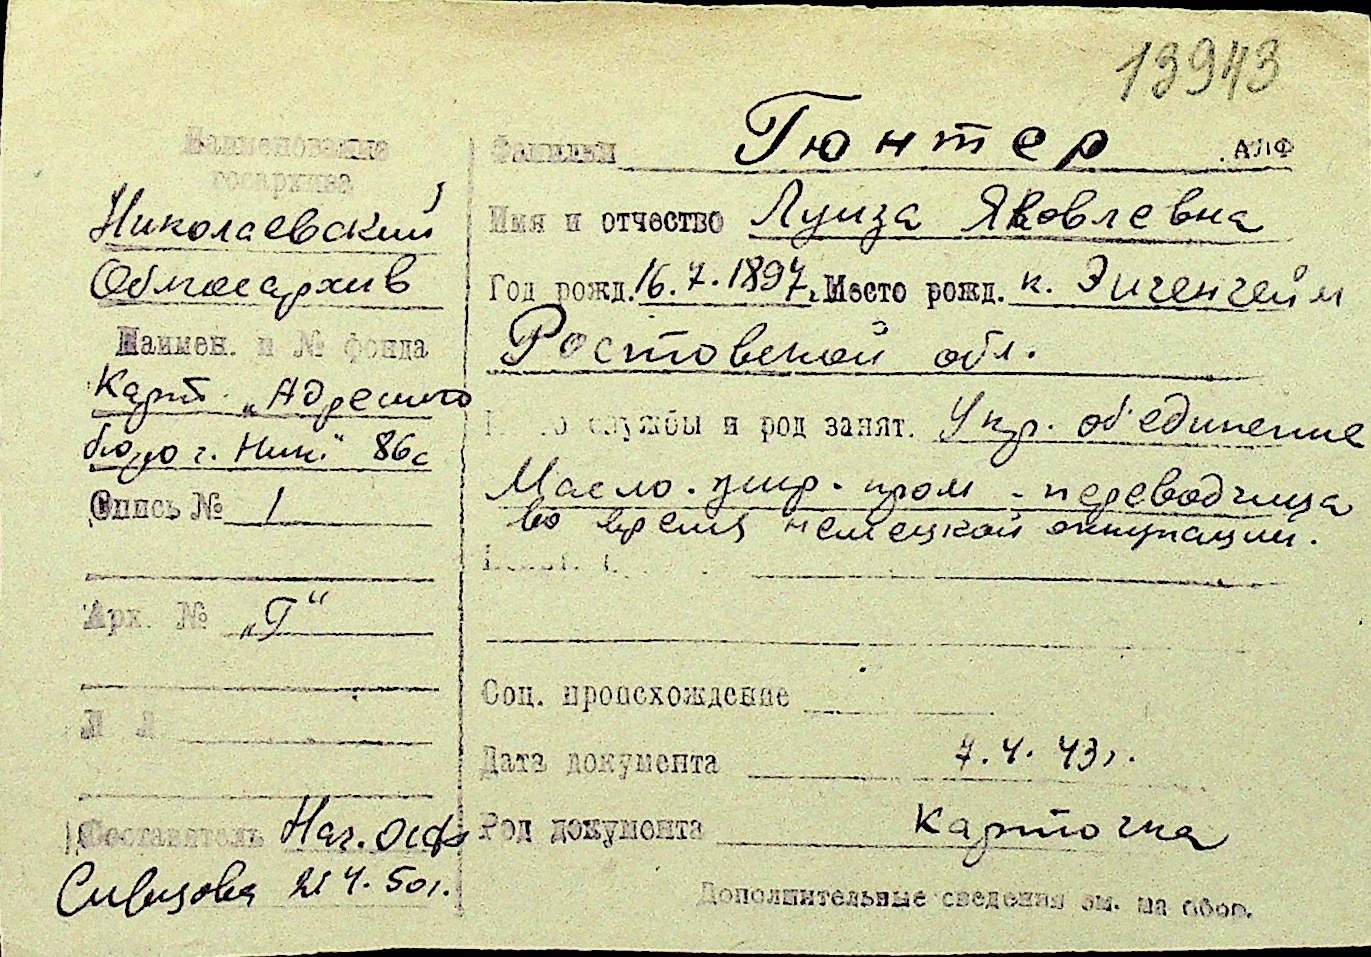 13943
Наименование
госархива
Николаевский
Облгосархив
Наимен. и № фонда
Карт. „Адресного
бюро г. Ник." 86с
Опись № 1
Арх. № „Г“
Л Л
Составитель Нач. осф
Сивцова 4. 50г.
Фамилия Гюнтер . АЛФ
Имя и отчество Луиза Яковлевна
Год рожд. 16.7.1897г. Место рожд. к. Эйгенгейм
Ростовской обл.
службы и род занят. Укр. об'единение
Масло. жир. пром - переводчица
во время немецкой оккупации.
Соц. происхождение
Дата документа 7.4.43г.
Род документа карточка
Дополнительные сведения см. на обор.